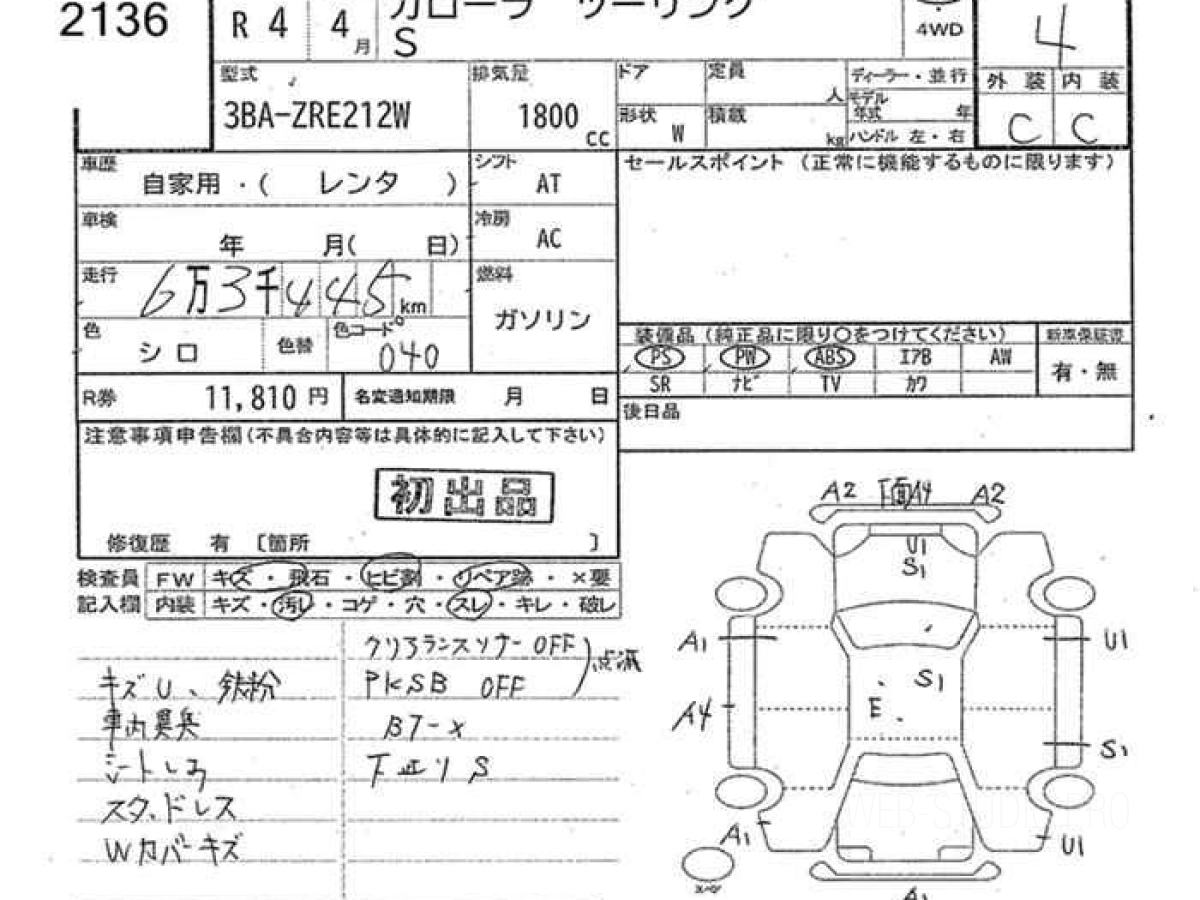 2136
R 4 4月
カローラ ツーリング
S
4WD
4
型式
3BA-ZRE212W
排気量
1800 cc
ドア
定員
人
形状 W
積載
kg
ディーラー・並行
モデル年式 年
ハンドル 左・右
外装 内装
C C
車歴
自家用・( レンタ )
シフト
AT
セールスポイント(正常に機能するものに限ります)
車検
年 月( 日)
冷房
AC
走行
6万3千445km
燃料
ガソリン
色
シロ
色替
色コード
040
装備品(純正品に限り○をつけてください)
新車保証書
PS PW ABS エアB AW
SR ナビ TV カワ
有・無
R券
11,810 円
名変通知期限 月 日
後日品
注意事項申告欄(不具合内容等は具体的に記入して下さい)
初出品
修復歴 有 〔箇所 〕
検査員記入欄
FW キズ・飛石・ヒビ割・リペア跡・×要
内装 キズ・汚レ・コゲ・穴・スレ・キレ・破レ
クリアランスソナーOFF
PKSB OFF
点滅
キズU、鉄粉
車内異臭
シートしみ
スタッドレス
Wカバーキズ
下廻りS
A2 下面A4 A2
U1
S1
A1
U1
S1
E
A4
S1
A1
U1
スペア
A1
WEB-STUDIO.PRO